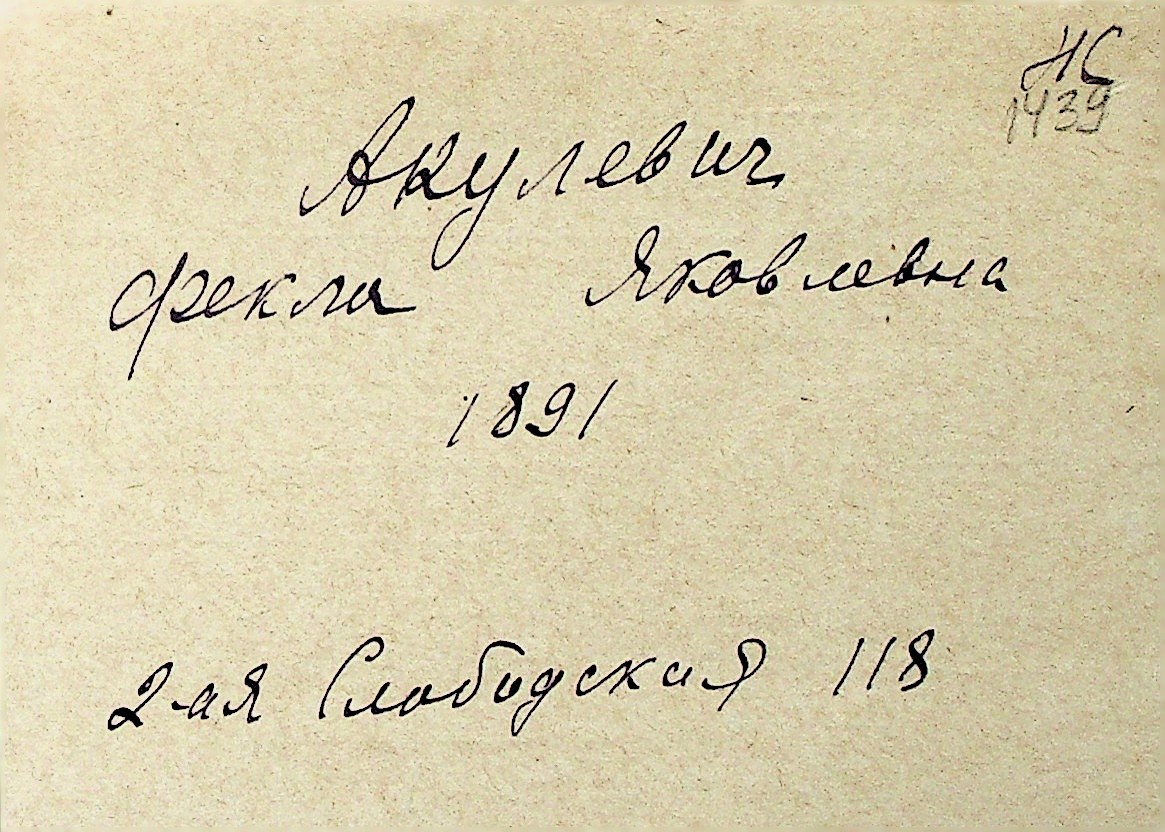 НС
1439
Акулевич
Фекла Яковлевна
1891
2-ая Слободская 118